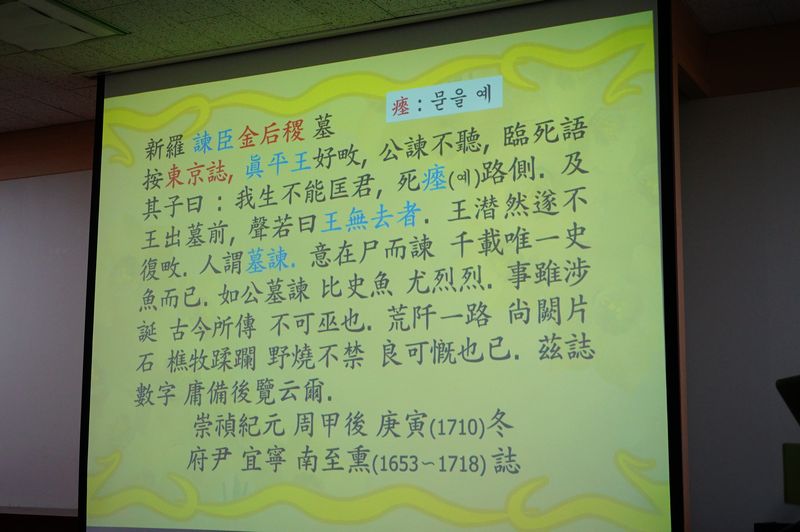 瘞 : 묻을 예
新羅 諫臣金后稷 墓
按東京誌, 眞平王好畋, 公諫不聽, 臨死語
其子曰 : 我生不能匡君, 死瘞(예)路側. 及
王出墓前, 聲若曰王無去者. 王潸然遂不
復畋. 人謂墓諫. 意在尸而諫 千載唯一史
魚而已. 如公墓諫 比史魚 尤烈烈. 事雖涉
誕 古今所傳 不可巫也. 荒阡一路 尚闕片
石 樵牧蹂躙 野燒不禁 良可慨也已. 玆誌
數字 庸備後覽云爾.
崇禎紀元 周甲後 庚寅(1710)冬
府尹 宜寧 南至熏(1653~1718) 誌